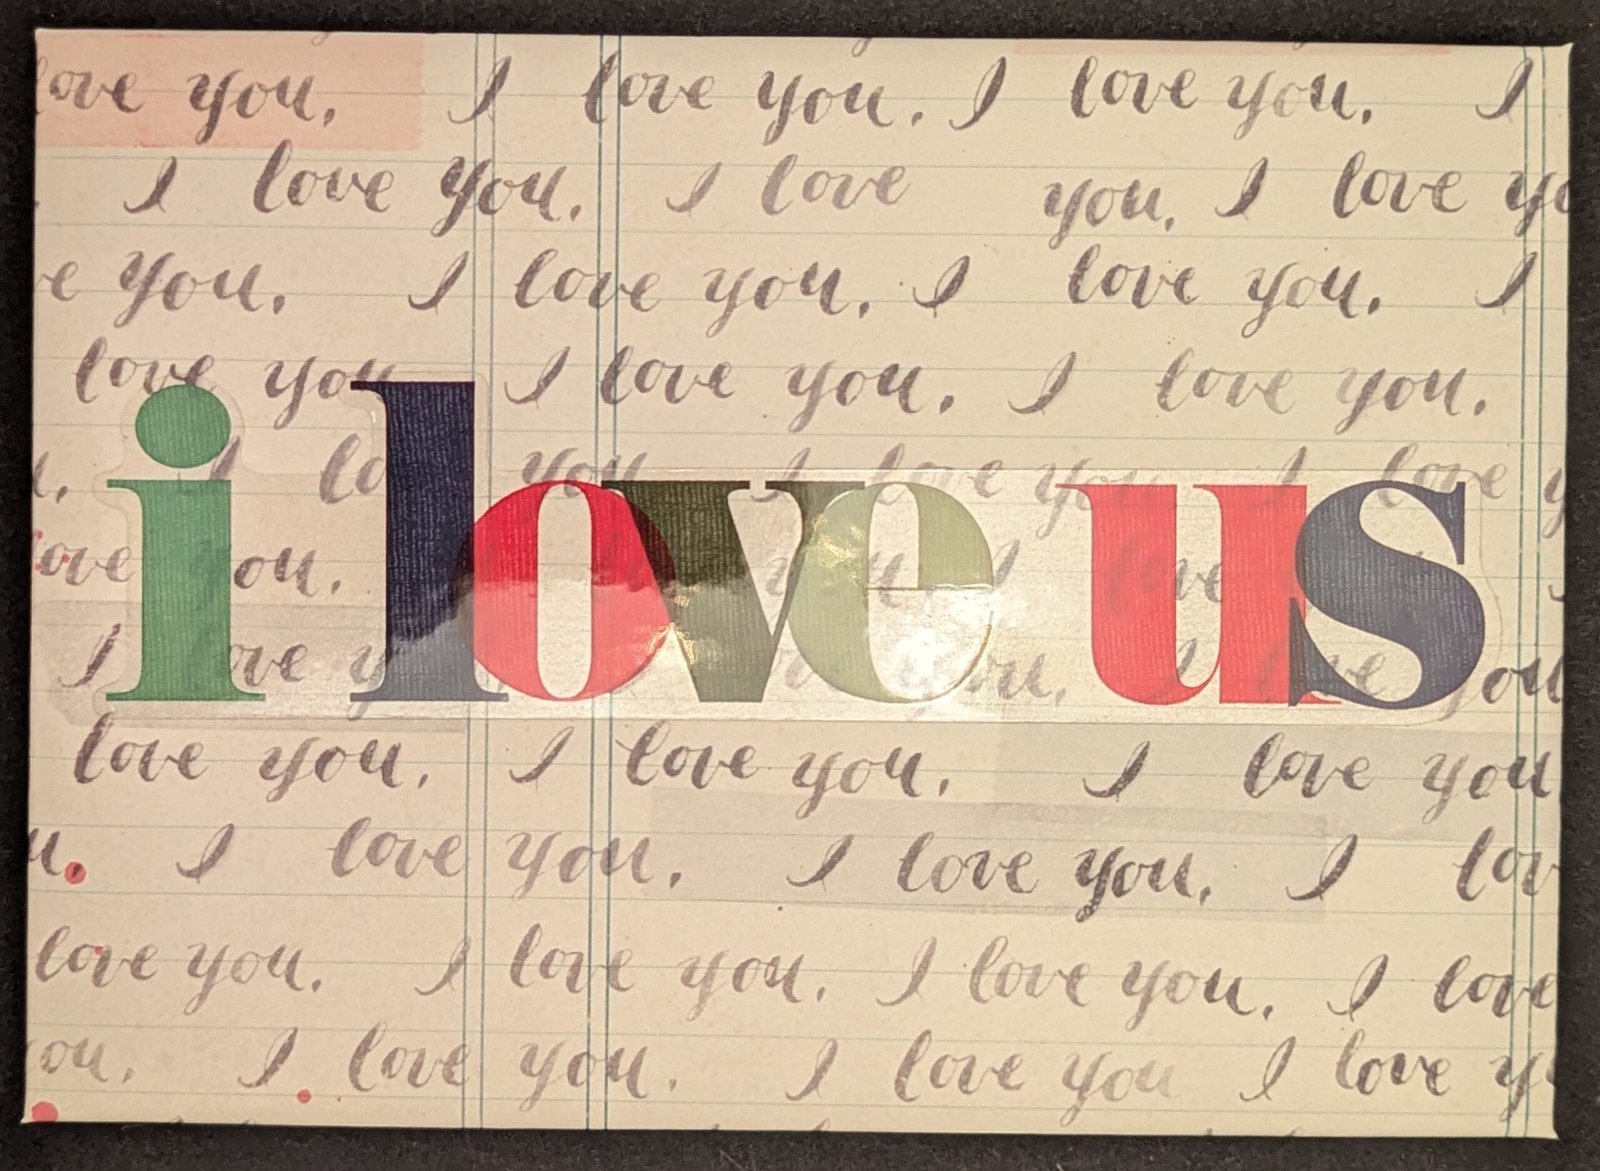 love you, I love you. I love you, I
I love you, I love you, I love yo
e you, I love you, I love you, I
love you I love you, I love you,
u, I lo you I love you I love y
love you,
i love us
I ove y you, I love you
love you, I love you, I love you
u, I love you, I love you, I lov
love you, I love you, I love you, I love
you, I love you, I love you I love y